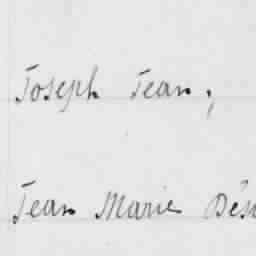 Joseph Jean,
Jean Marie